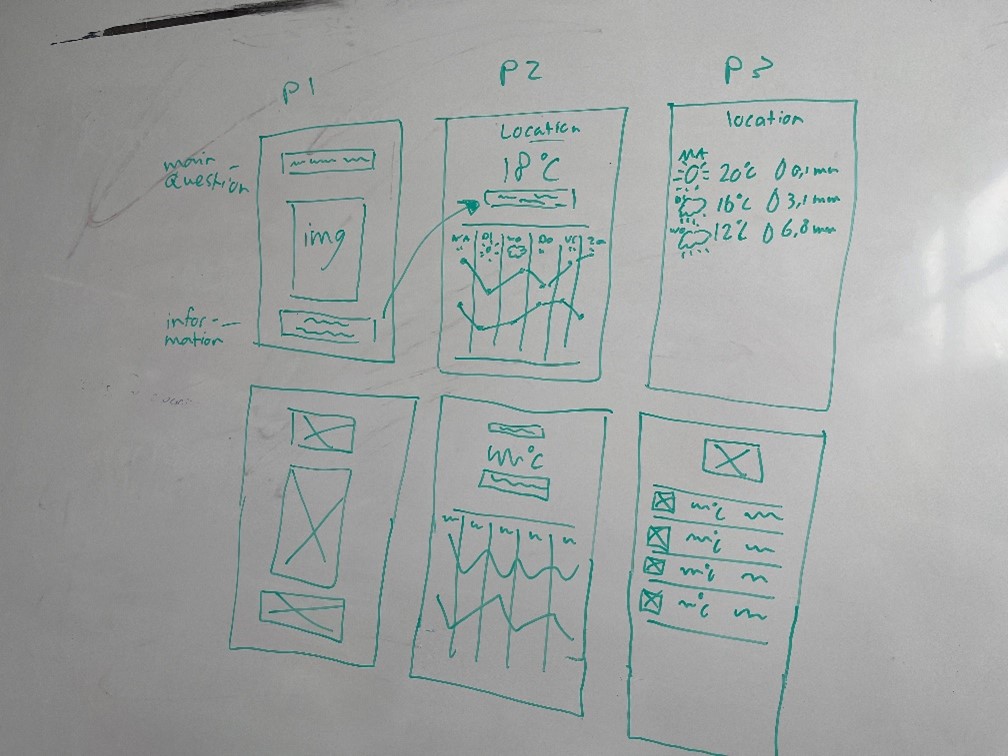 P1
P2
P3
main
Question
img
infor-
mation
Location
18°C
MA
DI
WO
DO
location
MA
20°C 0,1 mm
DI
16°C 3,1 mm
WO
12°C 6,8 mm
°C
°C
°C
°C
°C